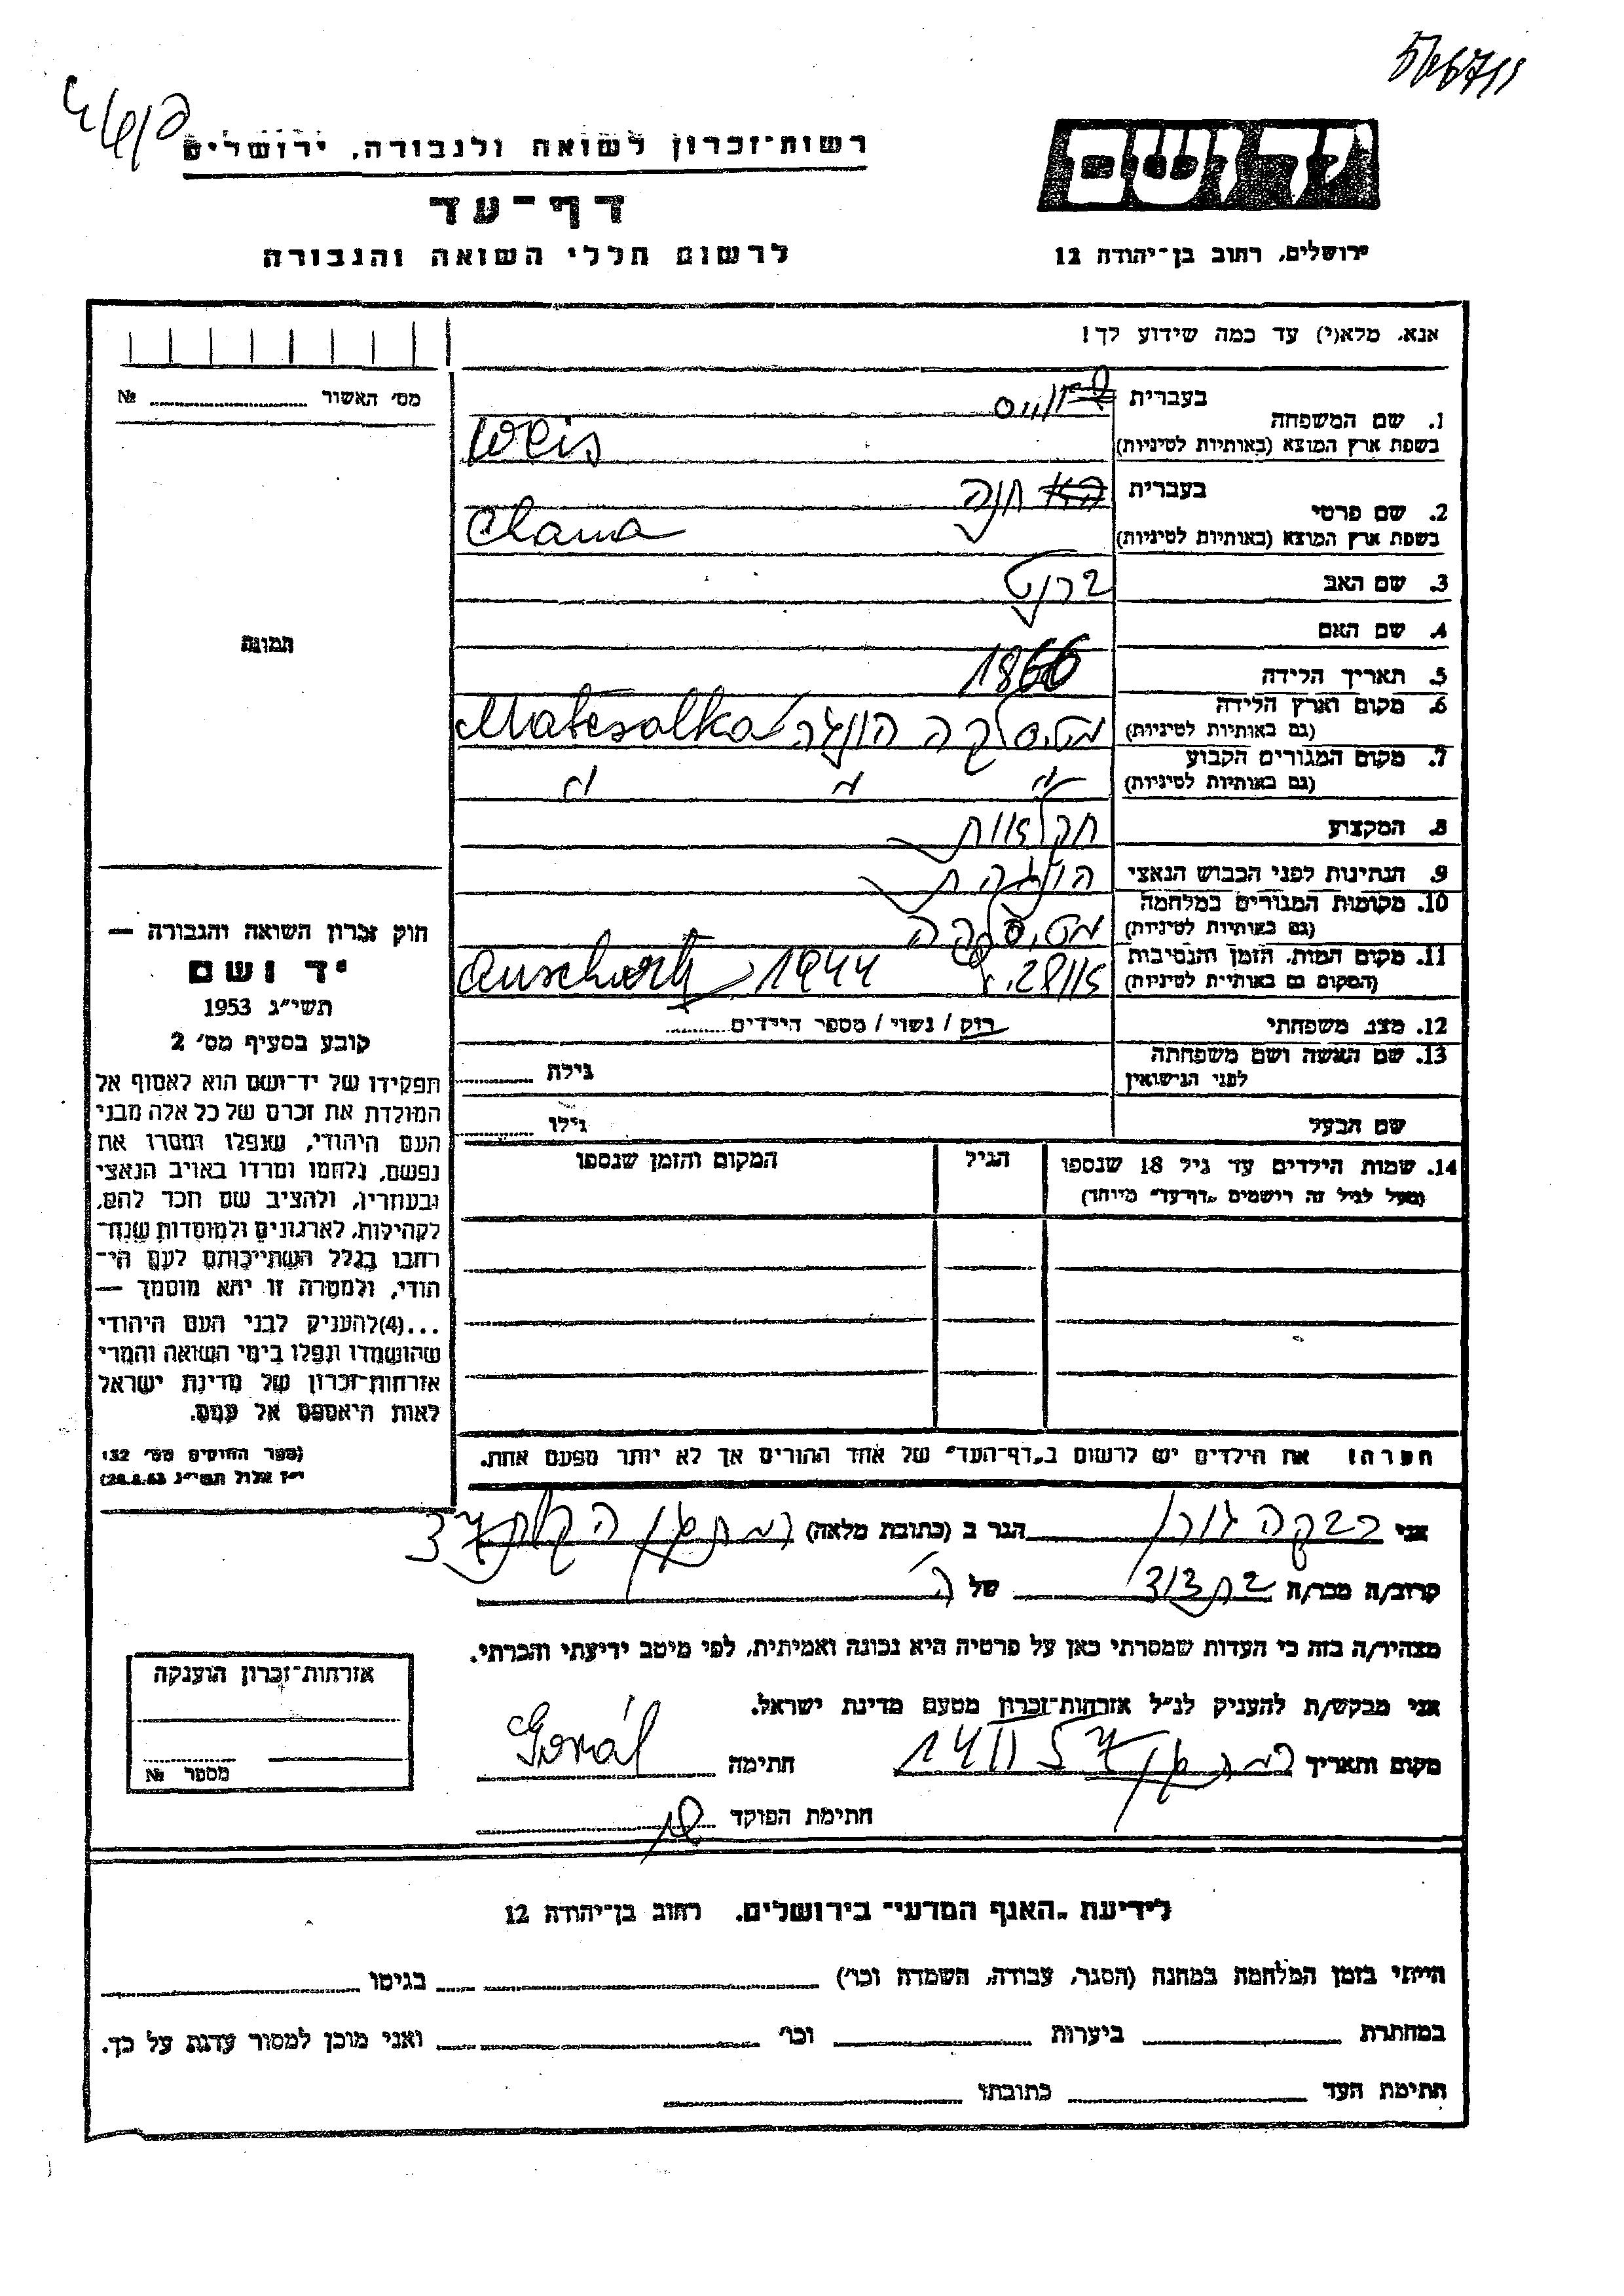 רשות־זכרון לשואה ולגבורה, ירושלים
דף־עד
לרשום חללי השואה והגבורה
ירושלים, רחוב בן־יהודה 12
אנא, מלא(י) עד כמה שידוע לך!
מס׳ האשור № ........
1. שם המשפחה
בעברית וייס
בשפת ארץ המוצא (באותיות לטיניות) Weis
2. שם פרטי
בעברית חנה
בשפת ארץ המוצא (באותיות לטיניות) Chana
3. שם האב
4. שם האם
5. תאריך הלידה 1866
6. מקום וארץ הלידה
(גם באותיות לטיניות) Mateszalka
7. מקום המגורים הקבוע
(גם באותיות לטיניות) " " "
8. המקצוע חקלאות
9. הנתינות לפני הכבוש הנאצי הונגרית
10. מקומות המגורים במלחמה
(גם באותיות לטיניות)
11. מקום המות, הזמן והנסיבות
(המקום גם באותיות לטיניות) 1944
12. מצב משפחתי רוק / נשוי / מספר הילדים........
13. שם האשה ושם משפחתה
לפני הנישואין
גילה ........
שם הבעל גילו ........
14. שמות הילדים עד גיל 18 שנספו
(מעל לגיל זה רישמים „דף־עד״ מיוחד)
הגיל
המקום והזמן שנספו
תמונה
חוק זכרון השואה והגבורה —
יד ושם
תשי״ג 1953
קובע בסעיף מס׳ 2
תפקידו של יד־ושם הוא לאסוף אל
המולדת את זכרם של כל אלה מבני
העם היהודי, שנפלו ומסרו את
נפשם, נלחמו ומרדו באויב הנאצי
ובעוזריו, ולהציב שם וזכר להם,
לקהילות, לארגונים ולמוסדות שנח־
רחבו בגלל השתייכותם לעם הי־
הודי, ולמטרה זו יהא מוסמך —
...(4)להעניק לבני העם היהודי
שהושמדו ונפלו בימי השואה והמרי
אזרחות־זכרון של מדינת ישראל
לאות היאספם אל עמם.
(ספר החוקים מס׳ 132
י״ז אלול תשי״ג 28.8.53)
הערה! את הילדים יש לרשום ב„דף־העד״ של אחד ההורים אך לא יותר מפעם אחת.
אני רבקה גורל הגר ב (כתובת מלאה)
קרוב/ה מכר/ה של
מצהיר/ה בזה כי העדות שמסרתי כאן על פרטיה היא נכונה ואמיתית, לפי מיטב ידיעתי והכרתי.
אני מבקש/ת להעניק לנ״ל אזרחות־זכרון מטעם מדינת ישראל.
מקום ותאריך 14 II 57 חתימה Gorál
חתימת הפוקד
אזרחות־זכרון הוענקה
מספר №
לידיעת „האגף המדעי״ בירושלים, רחוב בן־יהודה 12
הייתי בזמן המלחמה במחנה (הסגר, עבודה, השמדה וכו׳) ........ בגיטו ........
במחתרת ........ ביערות ........ וכו׳ ........ ואני מוכן למסור עדות על כך.
חתימת העד ........ כתובתו ........